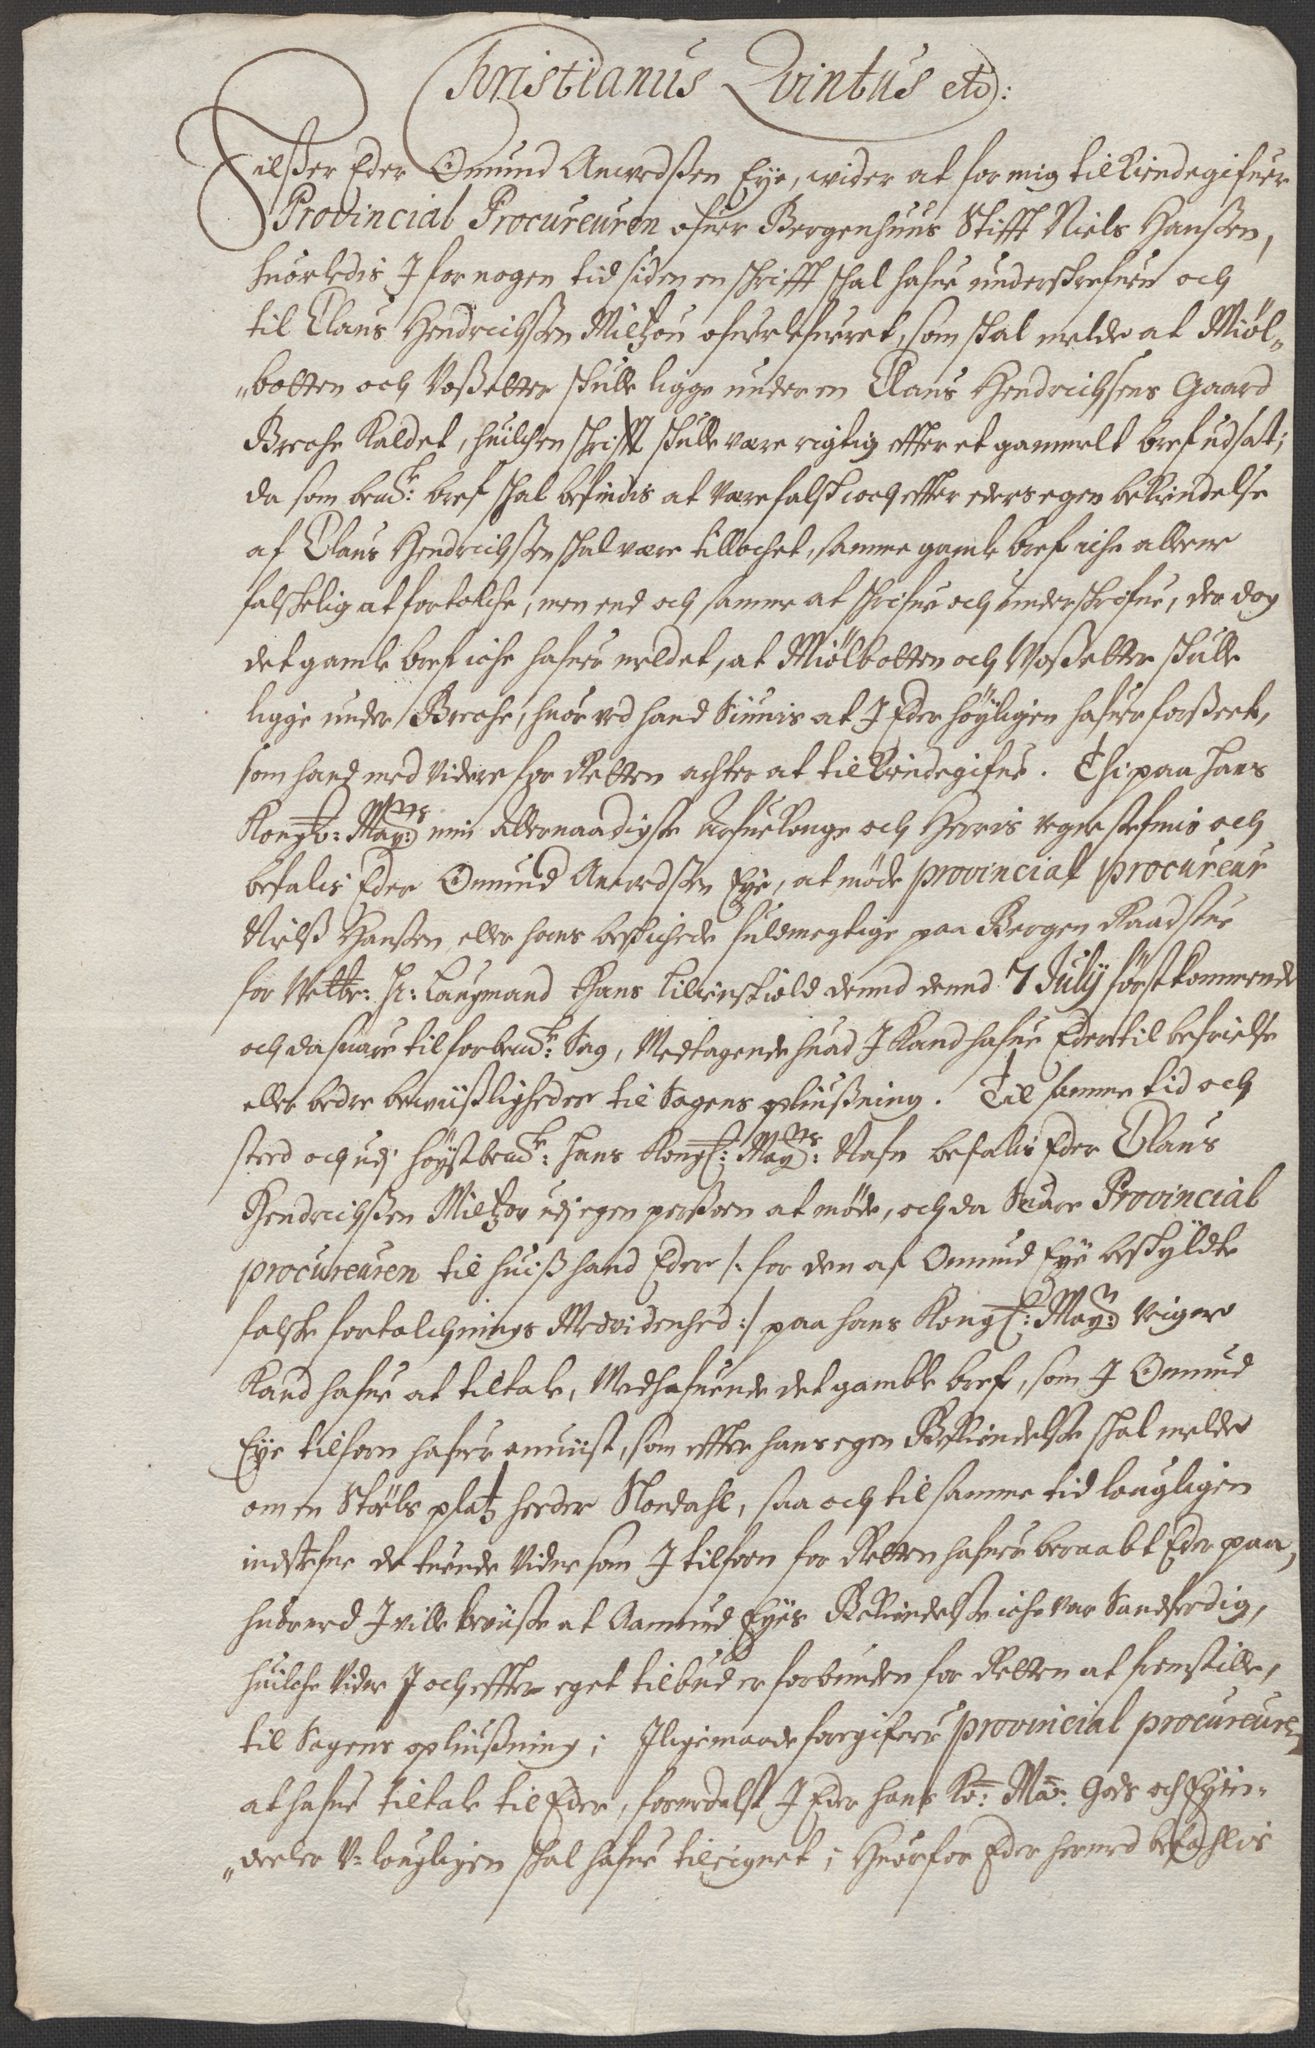 Christianus Qvintus etc:
Hilsser Eder Omund Amerdssen Eye, wider at for mig tilkiendegifuer
Provincial Procureuren ofuer Bergenhuus Stifft Niels Hanssen,
huorledis I for nogen tid siden en schrifft schal hafue underskrefuen och
til Claus Hendrichssen Miltzou ofuerlefueret, som skal melde at Miøl„
„botten och Vossetter skulle ligge under en Claus Hendrichsens Gaard
Breche kaldet, huilchen schrifft skulle være rigtig effter et gammelt bref udsat;
da som bemte: bref schal befindis at være falsk, och effter eders egen bekiendelse
af Claus Hendrichssen schal være tillochet, samme gamle bref iche allene
falskelig at fortolche, men end och samme at schrifue och underschrifue, der dog
det gamle bref iche hafuer meldet, at Miölbotten och Vossetter skulle
ligge under Breche, huor ved hand Siunis at I Eder höyligen hafuer forsseet,
som hand med Videre for Retten achter at tilkiendegifue. Thi paa Hans
Kongl: Mayts: min Allernaadigste Arfue Konge och Herris vegne stefnis och
befalis Eder Omund Amerdssen Eye, at møde provincial procureur
Nielss Hanssen eller hans beskichede fuldmegtige paa Bergen Raadstue
for Velbr: Hr: Laugmand Hans Lillienskiold dend dend 7 July förstkommende
och da suare til forbemte: Sag, Medtagende huad I kand hafue Eder til befrielse
eller bedre bewiisligheder til Sagens opliussning. Til samme tid och
sted och udj höystbemte: Hans Kongl: Mayts: Nafn befalis Eder Claus
Hendrichssen Miltzou udj egen persson at møde, och da Suare Provincial
procureuren til huiss hand Eder /: for den af Omund Eye beskyldte
falske fortolchnings Medvidenhed :/ paa hans Kongl: Mayts: Veigne
kand hafue at tiltale, Medhafuende det gamble bref, som I Omund
Eye tilforn hafuer anuiist, som effter hans egen Bekiendelse skal melde
om en Støels platz heder Nordahl, saa och til samme tid lougligen
indstefne de tuende Vidner som I tilforn for Retten hafuer beraabt Eder paa,
huormed I ville beviisse at Aamund Eyes Bekiendelse iche var Sandferdig,
huilche Vidner I och effter eget tilbud er forbunden for Retten at fremstille,
til Sagens opliussning; Iligemaade forgifuer provincial procureuren
at hafue tiltale til Eder, formedelst I Eder hans Ko: Ma: Gods och Eyen„
„deeler V-lougligen skal hafue tileignet; Huorfor Eder hermed befahlis